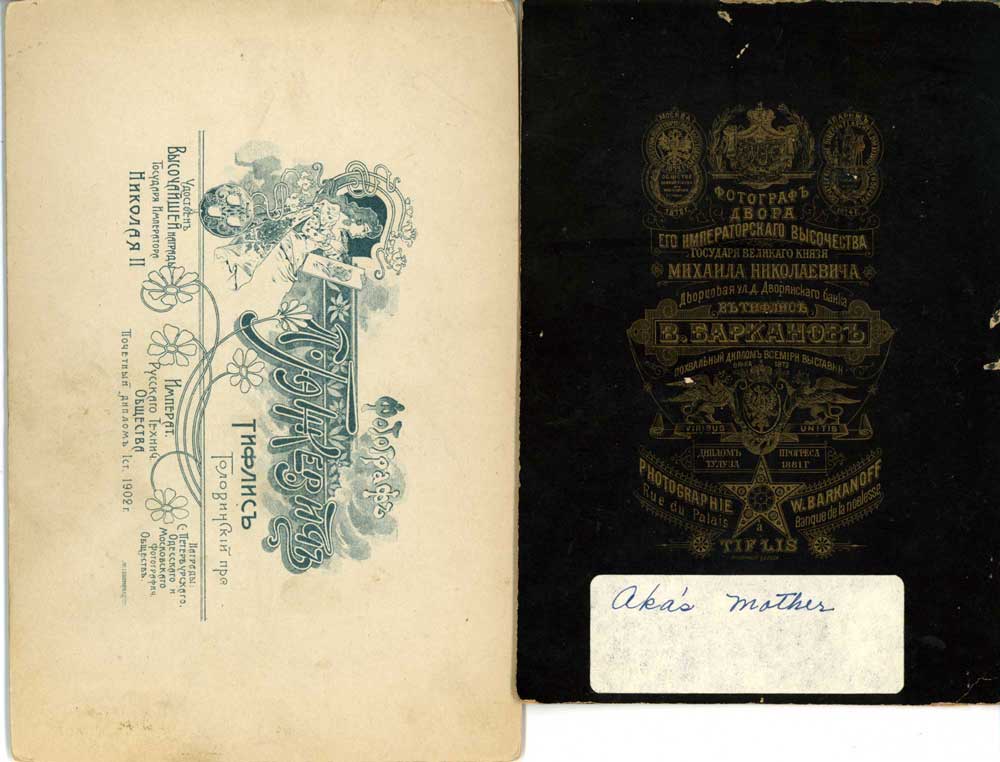 Фотографъ
ТИФЛИСЪ
Головинскій пр.
Удостоенъ
ВЫСОЧАЙШЕЙ награды
Государя Императора
НИКОЛАЯ II
Императ.
Русскаго Технич.
Общества
Почетный дипломъ Iст. 1902 г.
Награды:
С.-Петербургскаго,
Одесскаго и
Московскаго
Фотографич.
Обществъ.
МОСКВА
ПАРИЖЪ
ФОТОГРАФЪ
ДВОРА
ЕГО ИМПЕРАТОРСКАГО ВЫСОЧЕСТВА
ГОСУДАРЯ ВЕЛИКАГО КНЯЗЯ
МИХАИЛА НИКОЛАЕВИЧА
Дворцовая ул. д. Дворянскаго банка
ВЪ ТИФЛИСѢ
В. БАРКАНОВЪ
ПОХВАЛЬНЫЙ ДИПЛОМЪ ВСЕМІРН ВЫСТАВКИ
1873
VIRIBUS UNITIS
ДИПЛОМЪ ПРОГРЕСА
ТУЛУЗА 1881 Г
PHOTOGRAPHIE W. BARKANOFF
Rue du Palais Banque de la noblesse
à
TIFLIS
Aka's mother